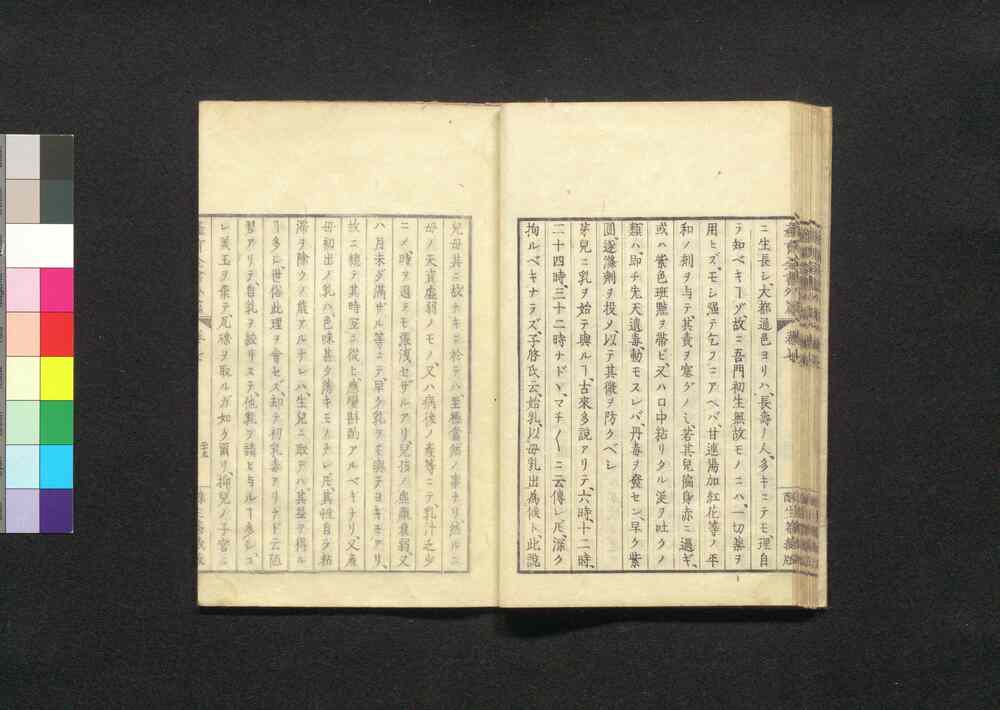 ニ生長シ、大都通邑ヨリハ、長壽ノ人、多キニテモ、理自
ラ知ベキヿゾ、故ニ吾門初生無故モノニハ、一切藥ヲ
用ヒズ、モシ強テ乞フニアヘバ、甘連湯加紅花等ノ平
和ノ剤ヲ与テ其責ヲ塞グノミ、若其兒徧身赤ニ過ギ、
或ハ紫色斑黯ヲ帯ビ、又ハ口中粘リタル涎ヲ吐クノ
類ハ、即チ先天遺毒、動モスレバ、丹毒ヲ發セン、早ク紫
圓、逐滌剤ヲ投メ、以テ其微ヲ防グベシ
芽兒ニ乳ヲ始テ與ルヿ、古來多說アリテ、六時、十二時、
二十四時、三十二時ナドヽ、マチ〱ニ云傳レ𪜈、深ク
拘ルベキナラズ、子啓氏云、始乳、以母乳出為候ト、此說
兒母其ニ故ナキニ於テハ、至極當然ノ事ナリ、然ルニ
母ノ天資虚弱ノモノ、又ハ病後ノ産等ニテ、乳汁乏少
ニメ、時ヲ過テモ漲洩セザルアリ、兒
ハ月未ダ滿ザル等ニテ、早ク乳ヲモ與テヨキモアリ、
故ニ總テ其時宜ニ從ヒ、應變斟酌アルベキナリ、又産
母初出ノ乳ハ色味甚タ薄キモノナレ𪜈、其性自ラ粘
滞ヲ除クノ能アルナレハ、生兒ニ取テハ、其益ヲ得ル
ヿ多シ、世俗此理ヲ會セズ、却テ初乳毒アリナド云陋
習アリテ、自乳ヲ絞リステ、他乳ヲ請ヒ与ルヿ多シ、コ
レ美玉ヲ棄テ、瓦礫ヲ取ルガ如ク爾リ、抑兒ノ子宮ニ